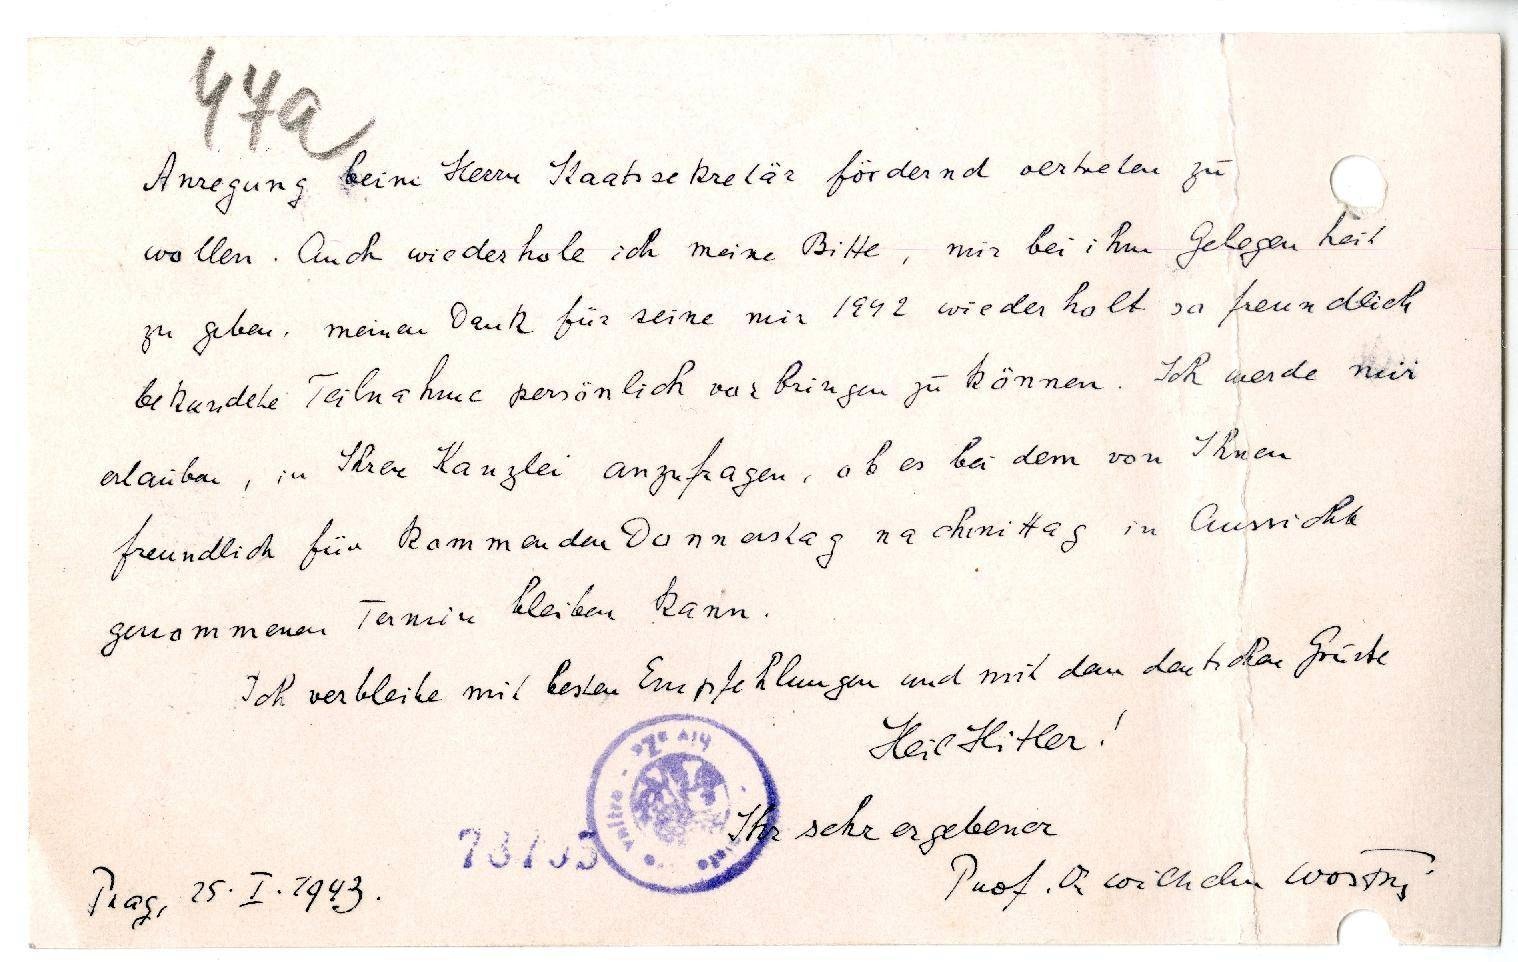 47a
Anregung beim Herrn Staatssekretär fördernd vertreten zu
wollen. Auch wiederhole ich meine Bitte, mir bei ihm Gelegenheit
zu geben, meinen Dank für seine mir 1942 wiederholt so freundlich
bekundete Teilnahme persönlich vorbringen zu können. Ich werde mir
erlauben, in Ihrer Kanzlei anzufragen, ob es bei dem von Ihnen
freundlich für kommenden Donnerstag nachmittag in Aussicht
genommenen Termin bleiben kann.
Ich verbleibe mit besten Empfehlungen und mit dem deutschen Grüße
Heil Hitler!
Ihr sehr ergebener
Prof. Dr Wilhelm Wostry
Prag, 25. I. 1943.